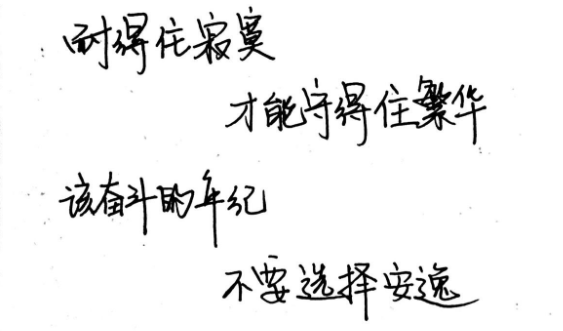 耐得住寂寞
才能守得住繁华
该奋斗的年纪
不要选择安逸